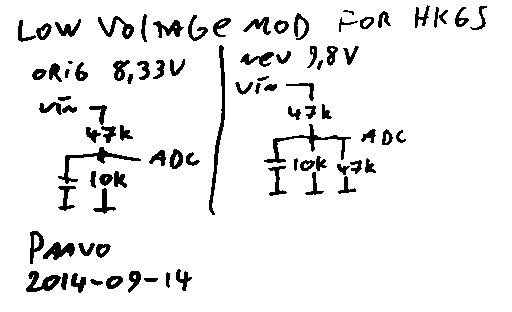 LOW VOLTAGE MOD FOR HKGS
ORIG 8,33V
Vin
47k
ADC
10k
NEU 9,8V
Vin
47k
ADC
10k 47k
PAAVO
2014-09-14